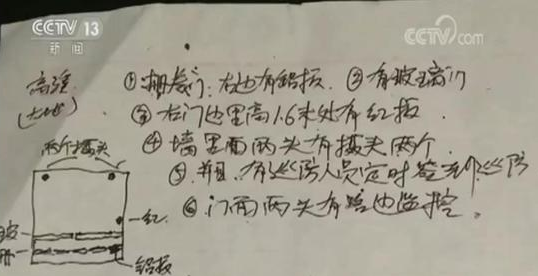 CCTV 13
新闻
CCTV.com
①栅栏门.右边有铝板 ②有玻璃门
③右门边里高1.6米处有红板
④墙里面两头有摄头两个
⑤并且有巡防人员定时签到巡防
⑥门面两头有路边监控
两个摄头
红
铝板